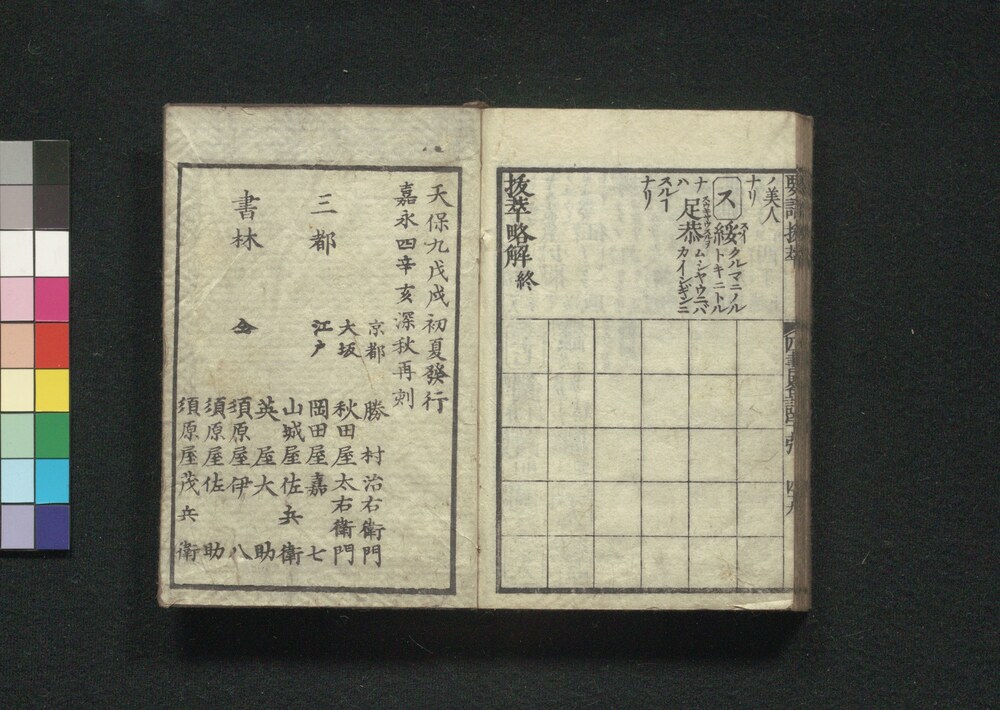 ノ美人
ナリ
ス
綏 スイ クルマニノル
トキニトル
ナ
ハ 足恭 ムシヤウニバ
カイシギンニ
スルー
ナリ
抜萃略解 終
天保九戊戌初夏發行
嘉永四辛亥深秋再刻
三都
書林
京都 勝村治右衛門
大坂 秋田屋太右衛門
江戸 岡田屋嘉七
山城屋佐兵衛
英屋大助
須原屋伊八
須原屋佐助
須原屋茂兵衛